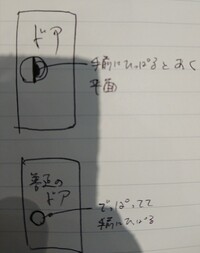 ドア
手前にひっぱるとあく
平面
普通の
ドア
でっぱってて
手前にひっぱる